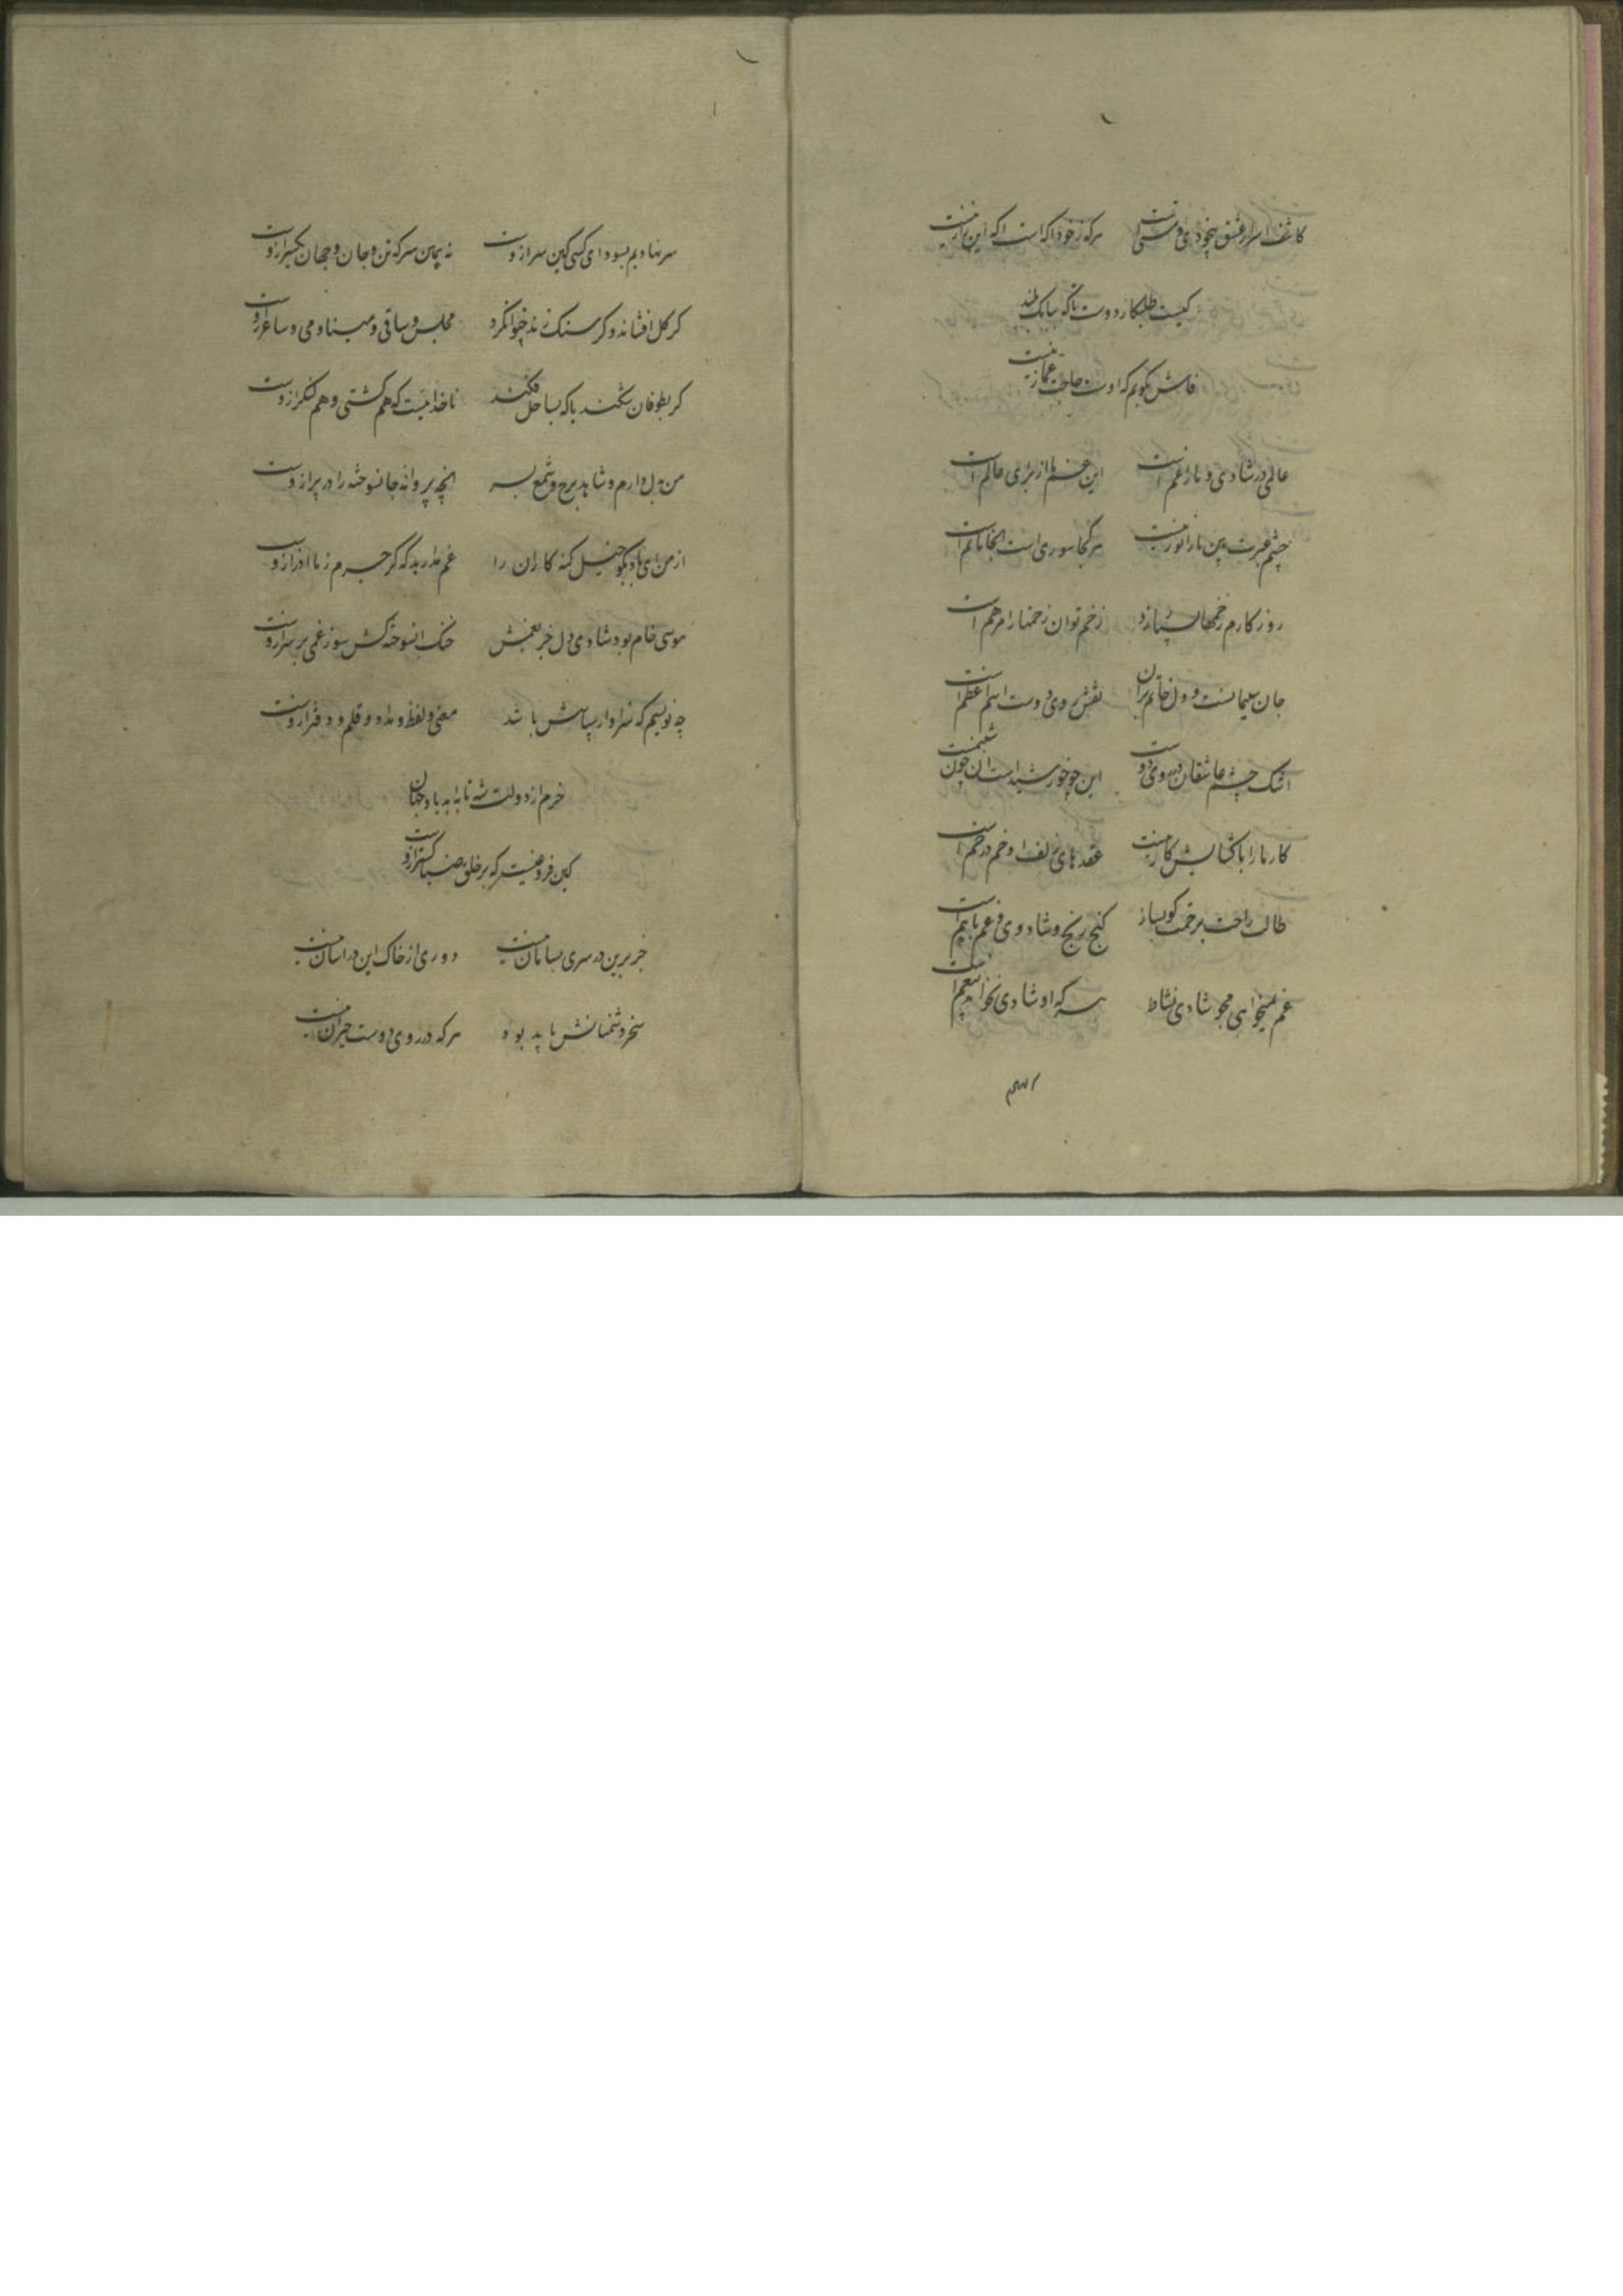 کاشف اسرار عشق بیخودی و مستی است هرکه ز خود اکه است اکه ازین راز نیست
کیست طلبکار دوست تاکه ببانک بلند
فاش بکویم که اوست حاجت غماز نیست
عالمی در شادی و ما را غم است این غم ما از برای عالم است
چشم عبرت بین ما را نور نیست هر کجا سوری است انجا ماتم است
روز کارم زخمها زد زخم توان زخمها را مرهم است
جان سلیمانست و دل خاتم بران نقش روی دوست اسم اعظم است
اشک چشم عاشقان در روی دوست این چو خورشید است ان چون شبنمست
کار ما را با کشایش کار نیست عقدهای زلف او خم در خم است
طالب راحت برحمت کو بساز کنج رنج و شادی و غم با هم است
غم میخواهی مجو شادی نشاط هرکه او شادی نخواهد بیغم است
سر نهادیم بسودای کسی کین سر ازوست نه همین سر که تن و جان و جهان یکسر ازوست
کر کل افشاند و کر سنک زند چتوان کرد مجلس و ساقی و مینا و می و ساغر ازوست
کر بطوفان شکند یا که بساحل فکند ناخدائیست که هم کشتی و هم لنکر ازوست
من بدل دارم و شاهد برخ و شمع بسر انچه پروانه جانسوخته را در پر ازوست
از من ای باد بکو خیل کنه کاران را غم مدارید که کر جرم ز ما اذر ازوست
موسی خام بود شادی دل جز بغمش خنک انسوخته کش سوز غمی بر سر ازوست
چه نویسم که سزاوار سپاسش باشد معنی و لفظ و مداد و قلم و دفتر ازوست
خرم از دولت شه تا به ابد باد جهان
کین فروغیست که بر خلق ضیا کستر ازوست
جز برین در سری بسامان نیست دوری از خاک این در اسان نیست
سخره دشمنانش باید بود هرکه در روی دوست حیران نیست